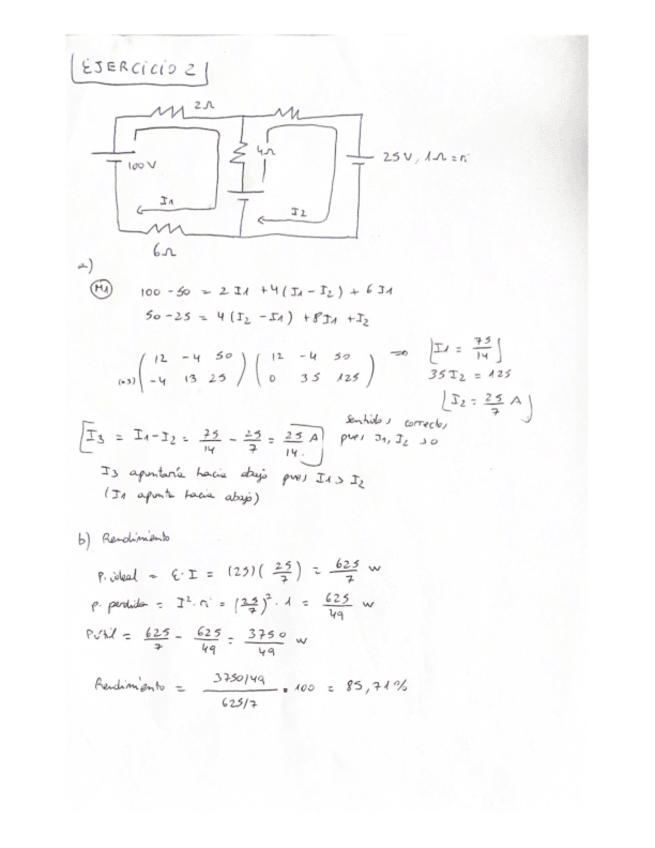 EJERCICIO 2
2Ω
4Ω
100V
25V, 1Ω = ri
I1
I2
6Ω
a)
M1 100 - 50 = 2I1 + 4(I1 - I2) + 6I1
50 - 25 = 4(I2 - I1) + 8I2 + I2
(·3) ( 12 -4 50 ) ( 12 -4 50 ) => I1 = 75/14
( -4 13 25 ) ( 0 35 125 ) 35I2 = 125
I2 = 25/7 A
I3 = I1 - I2 = 75/14 - 25/7 = 25/14 A sentidos correctos
pues I1, I2 > 0
I3 apuntaría hacia abajo pues I1 > I2
(I1 apunta hacia abajo)
b) Rendimiento
P. ideal = ε·I = (25)(25/7) = 625/7 w
P. perdida = I²·ri = (25/7)²·1 = 625/49 w
P útil = 625/7 - 625/49 = 3750/49 w
Rendimiento = 3750/49 / 625/7 · 100 = 85,71%